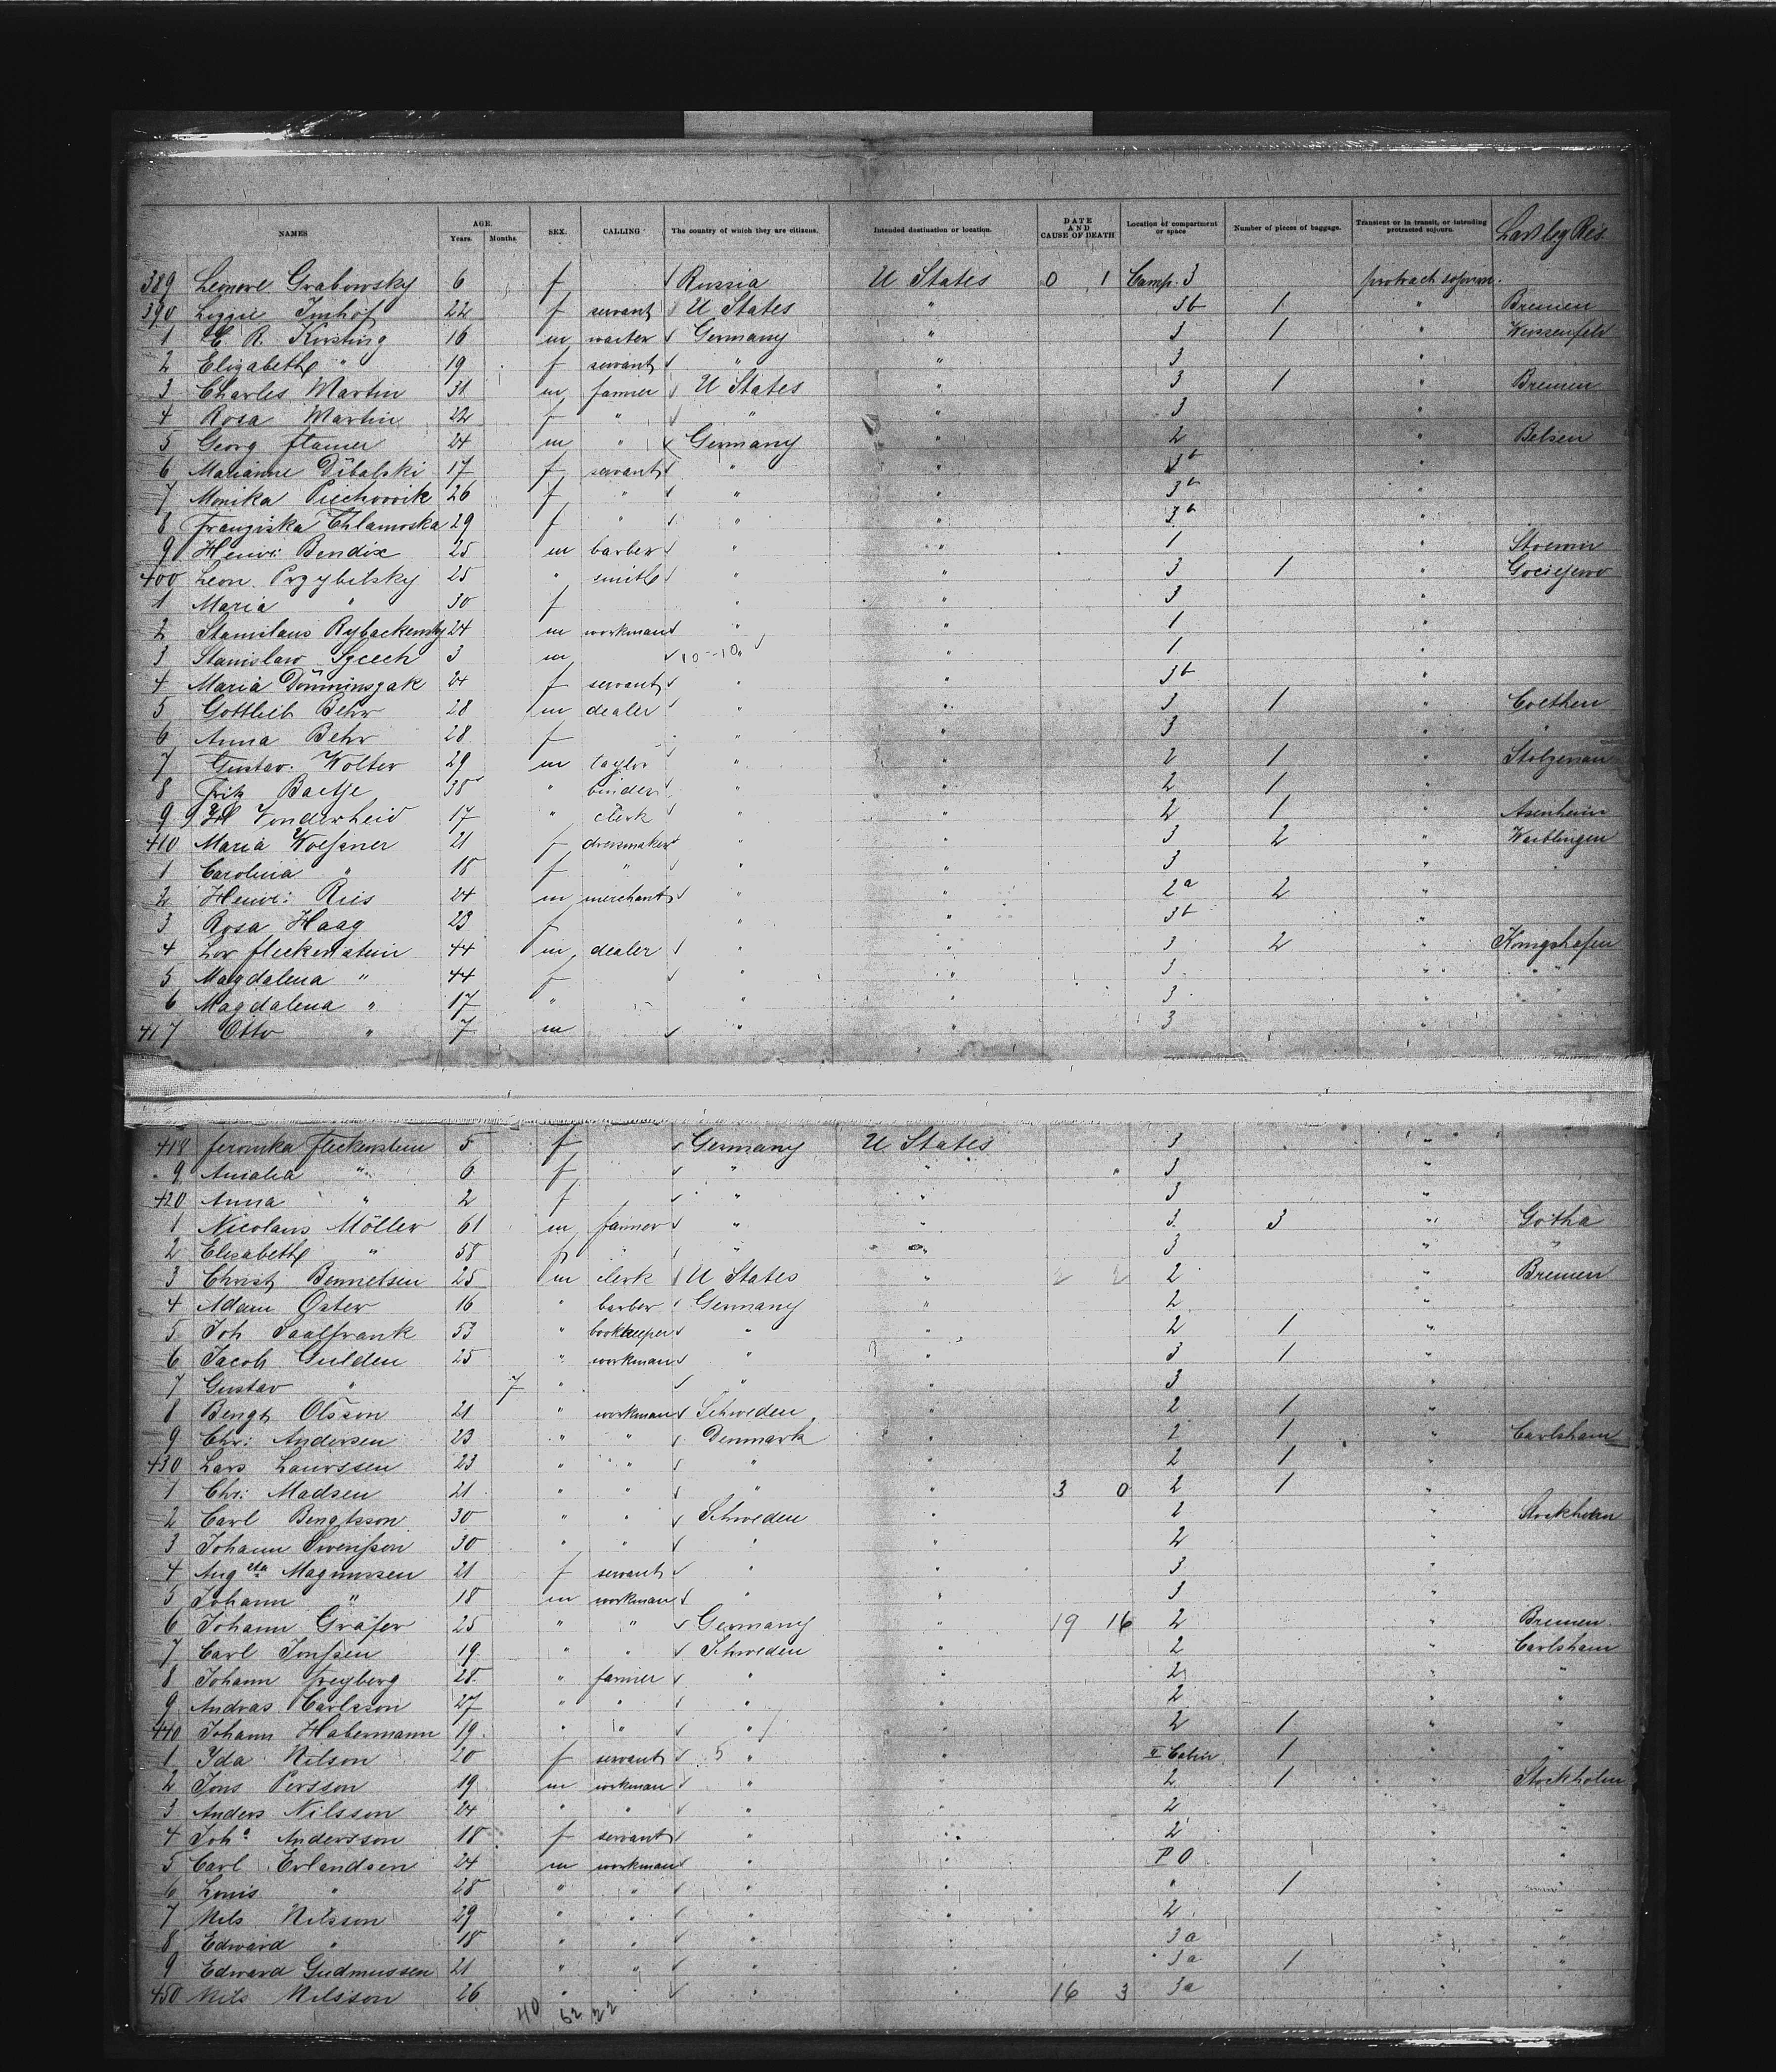 NAMES AGE. Years. Months. SEX. CALLING The country of which they are citizens. Intended destination or location. DATE AND CAUSE OF DEATH Location of compartment or space Number of pieces of baggage. Transient or in transit, or intending protracted sojourn. Last leg Res
389 Leonore Grabowsky 6 f Russia U States 0 1 Comp. 3 protract sojourn.
390 Lizzie Imhof 22 f servant U States " 3b 1 " Bremen
1 C. R. Kirsting 16 m waiter Germany " 3 1 " Weissenfels
2 Elizabeth " 19 f servant " " 3 "
3 Charles Martin 31 m farmer U States " 3 1 " Bremen
4 Rosa Martin 22 f " " " 3 "
5 Georg flamer 24 m " Germany " 2 " Belsen
6 Marianne Dibalski 17 f servant " " 3b "
7 Monika 26 f " " " 3b "
8 Franziska Chlamoska 29 f " " " 3b "
9 Henri: Bendix 25 m barber " " 1 "
400 Leon Przybilsky 25 " smith " " 3 1 "
1 Maria " 30 f " " 3 "
2 Stanislaus 24 m workman " " 1 "
3 Stanislaw 3 m 10-10 " 1 "
4 Maria 24 f servant " " 3b "
5 Gottlieb Behr 28 m dealer " " 3 1 " Coethen
6 Anna Behr 28 f " " 3 " "
7 Gustav Wolter 29 m taylor " " 2 1 " Stolzenau
8 Fritz Baetje 38 " binder " " 2 1 "
9 Vonderheid 17 " clerk " " 2 1 " Asenheim
410 Maria Woessner 21 f dressmaker " " 3 2 " Waiblingen
1 Carolina " 18 f " " " 3 "
2 Henri: Ries 24 m merchant " " 2a 2 "
3 Rosa Haag 23 f " " 3b "
4 Lor fleckenstein 44 m dealer " " 3 2 " Konigshofen
5 Magdalena " 44 f " " 3 " "
6 Magdalena " 17 " " " 3 " "
417 Otto " 7 m " " 3 "
418 feronika fleckenstein 5 f Germany U States 3 "
9 Amalia " 6 f " " 3 "
420 Anna " 2 f " " 3 "
1 Nicolaus Möller 61 m farmer " " 3 3 " Gotha
2 Elisabeth " 58 f " " 3 " "
3 Christ Bennetsen 25 m clerk U States " 2 " Bremen
4 Adam Oster 16 " barber Germany " 2 "
5 Joh Saalfrank 53 " bookkeeper " " 2 1 "
6 Jacob Gulden 25 " workman " " 3 1 "
7 Gustav " 7 " " " 3 "
8 Bengt Olsson 21 " workman Schweden " 2 1 "
9 Chr: Andersen 23 " " Denmark " 2 1 " Carlsham
430 Lars Laurssen 23 " " " " 2 1 "
1 Chr: Madsen 21 " " " " 3 0 2 1 "
2 Carl Bengtsson 30 " " Schweden " 2 " Stockholm
3 Johann Swensson 30 " " " " 2 "
4 Augsta Magnussen 21 f servant " " 3 "
5 Johann " 18 m workman " " 3 "
6 Johann Gräfer 25 " " Germany " 19 16 2 " Bremen
7 Carl Jonssen 19 " " Schweden " 2 " Carlsham
8 Johann freyberg 25 " farmer " " 2 " "
9 Andras Carlsson 27 " " " " 2 " "
440 Johann Habermann 19 " " " " 2 1 " "
1 Ida Nilson 20 f servant 5 " " II Cabin 1 " "
2 Jons Persson 19 m workman " " 2 1 " Stockholm
3 Anders Nilsson 24 " " " " 2 " "
4 Joha Andersson 18 f servant " " 2 " "
5 Carl Erlandsen 24 m workman " " P O " "
6 Louis " 28 " " " " " 1 " "
7 Nils Nilsson 29 " " " " 2 " "
8 Edward " 18 " " " " 3a " "
9 Edward Gudmussen 21 " " " " 3a 1 " "
450 Nils Nilsson 26 " " " " 16 3 3a " "
40 62 22